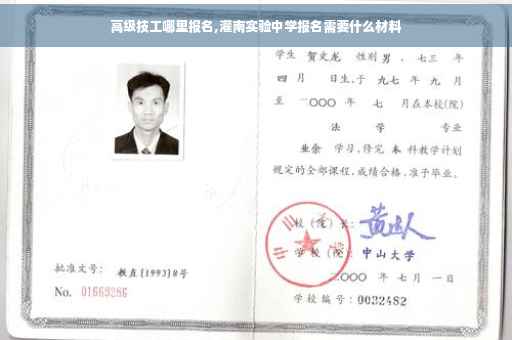 高级技工哪里报名,灌南实验中学报名需要什么材料
学生 贺文龙 性别 男 、七三 年
四 月 日生,于 九七 年 九 月
至 二〇〇〇 年 七 月在本校(院)
法 学 专业
业余 学习,修完 本 科教学计划
规定的全部课程,成绩合格,准予毕业。
校(院)长:
学校(院): 中山大学
二〇〇〇 年 七 月 一 日
学校编号: 0032482
批准文号: 教直(1993)8号
No. 01669286